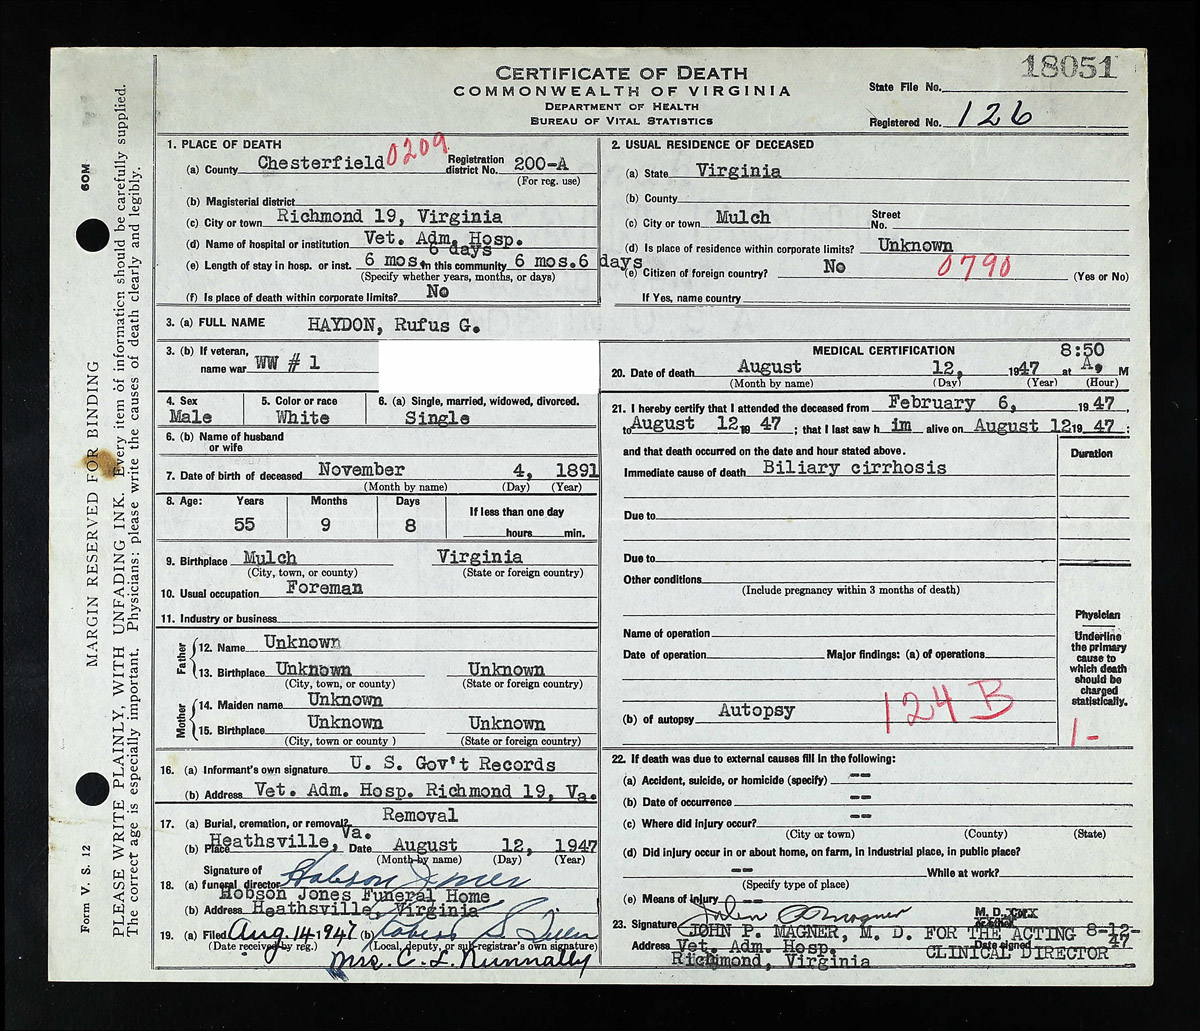 18051
CERTIFICATE OF DEATH
COMMONWEALTH OF VIRGINIA
DEPARTMENT OF HEALTH
BUREAU OF VITAL STATISTICS
State File No.
Registered No. 126
1. PLACE OF DEATH
(a) County Chesterfield 0209 Registration district No. 200-A
(For reg. use)
(b) Magisterial district
(c) City or town Richmond 19, Virginia
(d) Name of hospital or institution Vet. Adm. Hosp.
6 days
(e) Length of stay in hosp. or inst. 6 mos. In this community 6 mos.6 days
(Specify whether years, months, or days)
(f) Is place of death within corporate limits? No
2. USUAL RESIDENCE OF DECEASED
(a) State Virginia
(b) County
(c) City or town Mulch Street No.
(d) Is place of residence within corporate limits? Unknown
(e) Citizen of foreign country? No 0790 (Yes or No)
If Yes, name country
3. (a) FULL NAME HAYDON, Rufus G.
3. (b) If veteran, name war WW # 1
4. Sex Male
5. Color or race White
6. (a) Single, married, widowed, divorced. Single
6. (b) Name of husband or wife
7. Date of birth of deceased November 4, 1891
(Month by name) (Day) (Year)
8. Age: Years Months Days If less than one day
55 9 8 hours min.
9. Birthplace Mulch Virginia
(City, town, or county) (State or foreign country)
10. Usual occupation Foreman
11. Industry or business
Father
12. Name Unknown
13. Birthplace Unknown Unknown
(City, town, or county) (State or foreign country)
Mother
14. Maiden name Unknown
15. Birthplace Unknown Unknown
(City, town or county ) (State or foreign country)
16. (a) Informant's own signature U. S. Gov't Records
(b) Address Vet. Adm. Hosp. Richmond 19, Va.
17. (a) Burial, cremation, or removal? Removal
(b) Place Heathsville, Va. Date August 12, 1947
(Month by name) (Day) (Year)
18. (a) Signature of funeral director Hobson Jones
Hobson Jones Funeral Home
(b) Address Heathsville, Virginia
19. (a) Filed Aug. 14-1947 (b)
(Date received by reg.) (Local, deputy, or sub-registrar's own signature)
Mrs. C. L. Nunnally
MEDICAL CERTIFICATION
20. Date of death August 12, 1947 at 8:50 A. M
(Month by name) (Day) (Year) (Hour)
21. I hereby certify that I attended the deceased from February 6, 1947,
to August 12 19 47 ; that I last saw h im alive on August 12 19 47 ;
and that death occurred on the date and hour stated above.
Duration
Immediate cause of death Biliary cirrhosis
Due to
Due to
Other conditions
(Include pregnancy within 3 months of death)
Name of operation
Date of operation Major findings: (a) of operations
(b) of autopsy Autopsy 124 B
Physician
Underline
the primary
cause to
which death
should be
charged
statistically.
1-
22. If death was due to external causes fill in the following:
(a) Accident, suicide, or homicide (specify) --
(b) Date of occurrence --
(c) Where did injury occur? --
(City or town) (County) (State)
(d) Did injury occur in or about home, on farm, in industrial place, in public place?
-- While at work?
(Specify type of place)
(e) Means of injury --
23. Signature John P Magner M. D.
JOHN P. MAGNER, M. D. FOR THE ACTING CLINICAL DIRECTOR
Address Vet. Adm. Hosp. Date signed 8-12-47
Richmond, Virginia
60M
MARGIN RESERVED FOR BINDING
Form V. S. 12
PLEASE WRITE PLAINLY, WITH UNFADING INK. Every item of information should be carefully supplied.
The correct age is especially important. Physicians: please write the causes of death clearly and legibly.